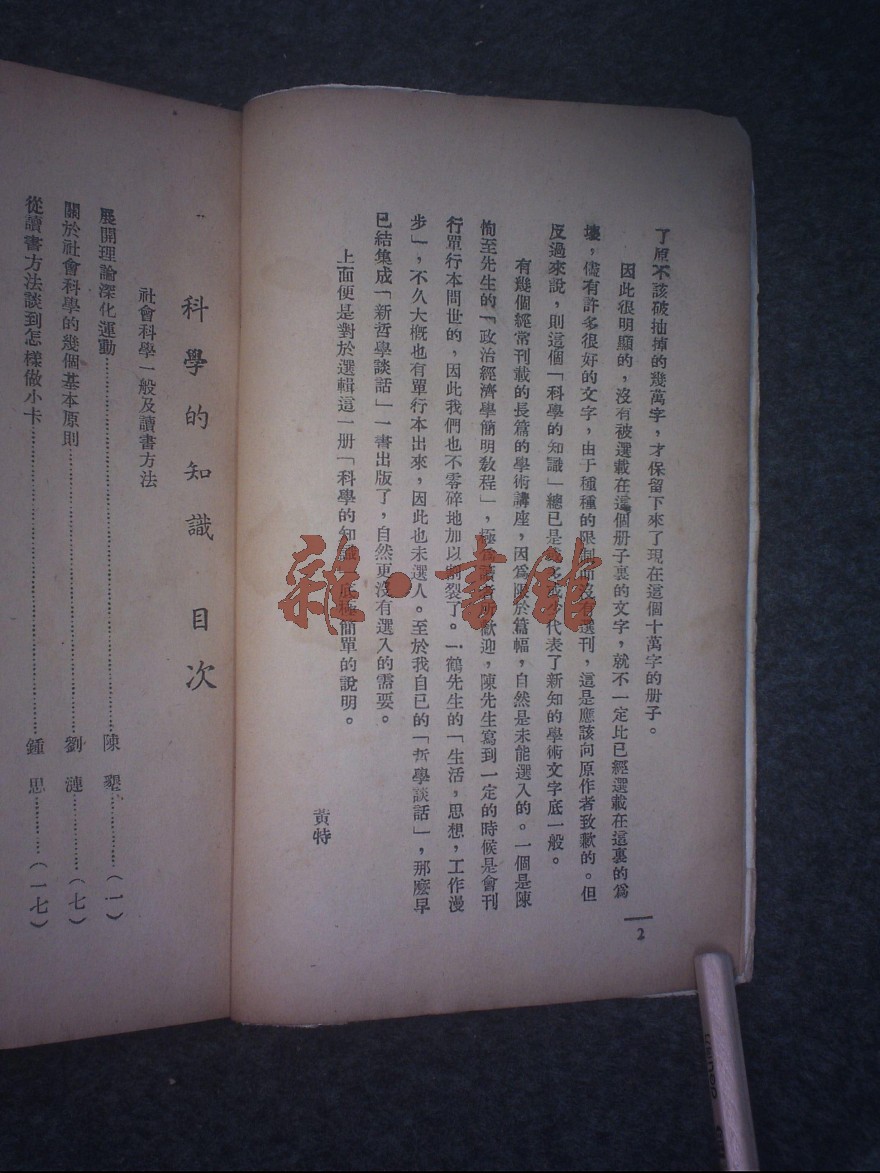 了原不該破抽掉的幾萬字，才保留下來了現在這個十萬字的册子。
因此很明顯的，沒有被選載在這個册子裏的文字，就不一定比已經選載在這裏的爲
壞，儘有許多很好的文字，由于種種的限制而沒有選刊，這是應該向原作者致歉的。但
反過來說，則這個「科學的知識」總已是或多或少代表了新知的學術文字底一般。
有幾個經常刊載的長篇的學術講座，因爲限於篇幅，自然是未能選入的。一個是陳
恂至先生的「政治經濟學簡明教程」，極受讀者所歡迎，陳先生寫到一定的時候是會刊
行單行本問世的，因此我們也不零碎地加以割裂了。一鶴先生的「生活，思想，工作漫
步」，不久大概也有單行本出來，因此也未選人。至於我自已的「哲學談話」，那麽早
已結集成「新哲學談話」一書出版了，自然更沒有選入的需要。
上面便是對於選輯這一册「科學的知識」底極簡單的說明。
黃特
2
科學的知識 目次
社會科學一般及讀書方法
展開理論深化運動……陳 (一)
關於社會科學的幾個基本原則……劉漣……(七)
從讀書方法談到怎樣做小卡……鍾思……(一七)
雜·書館